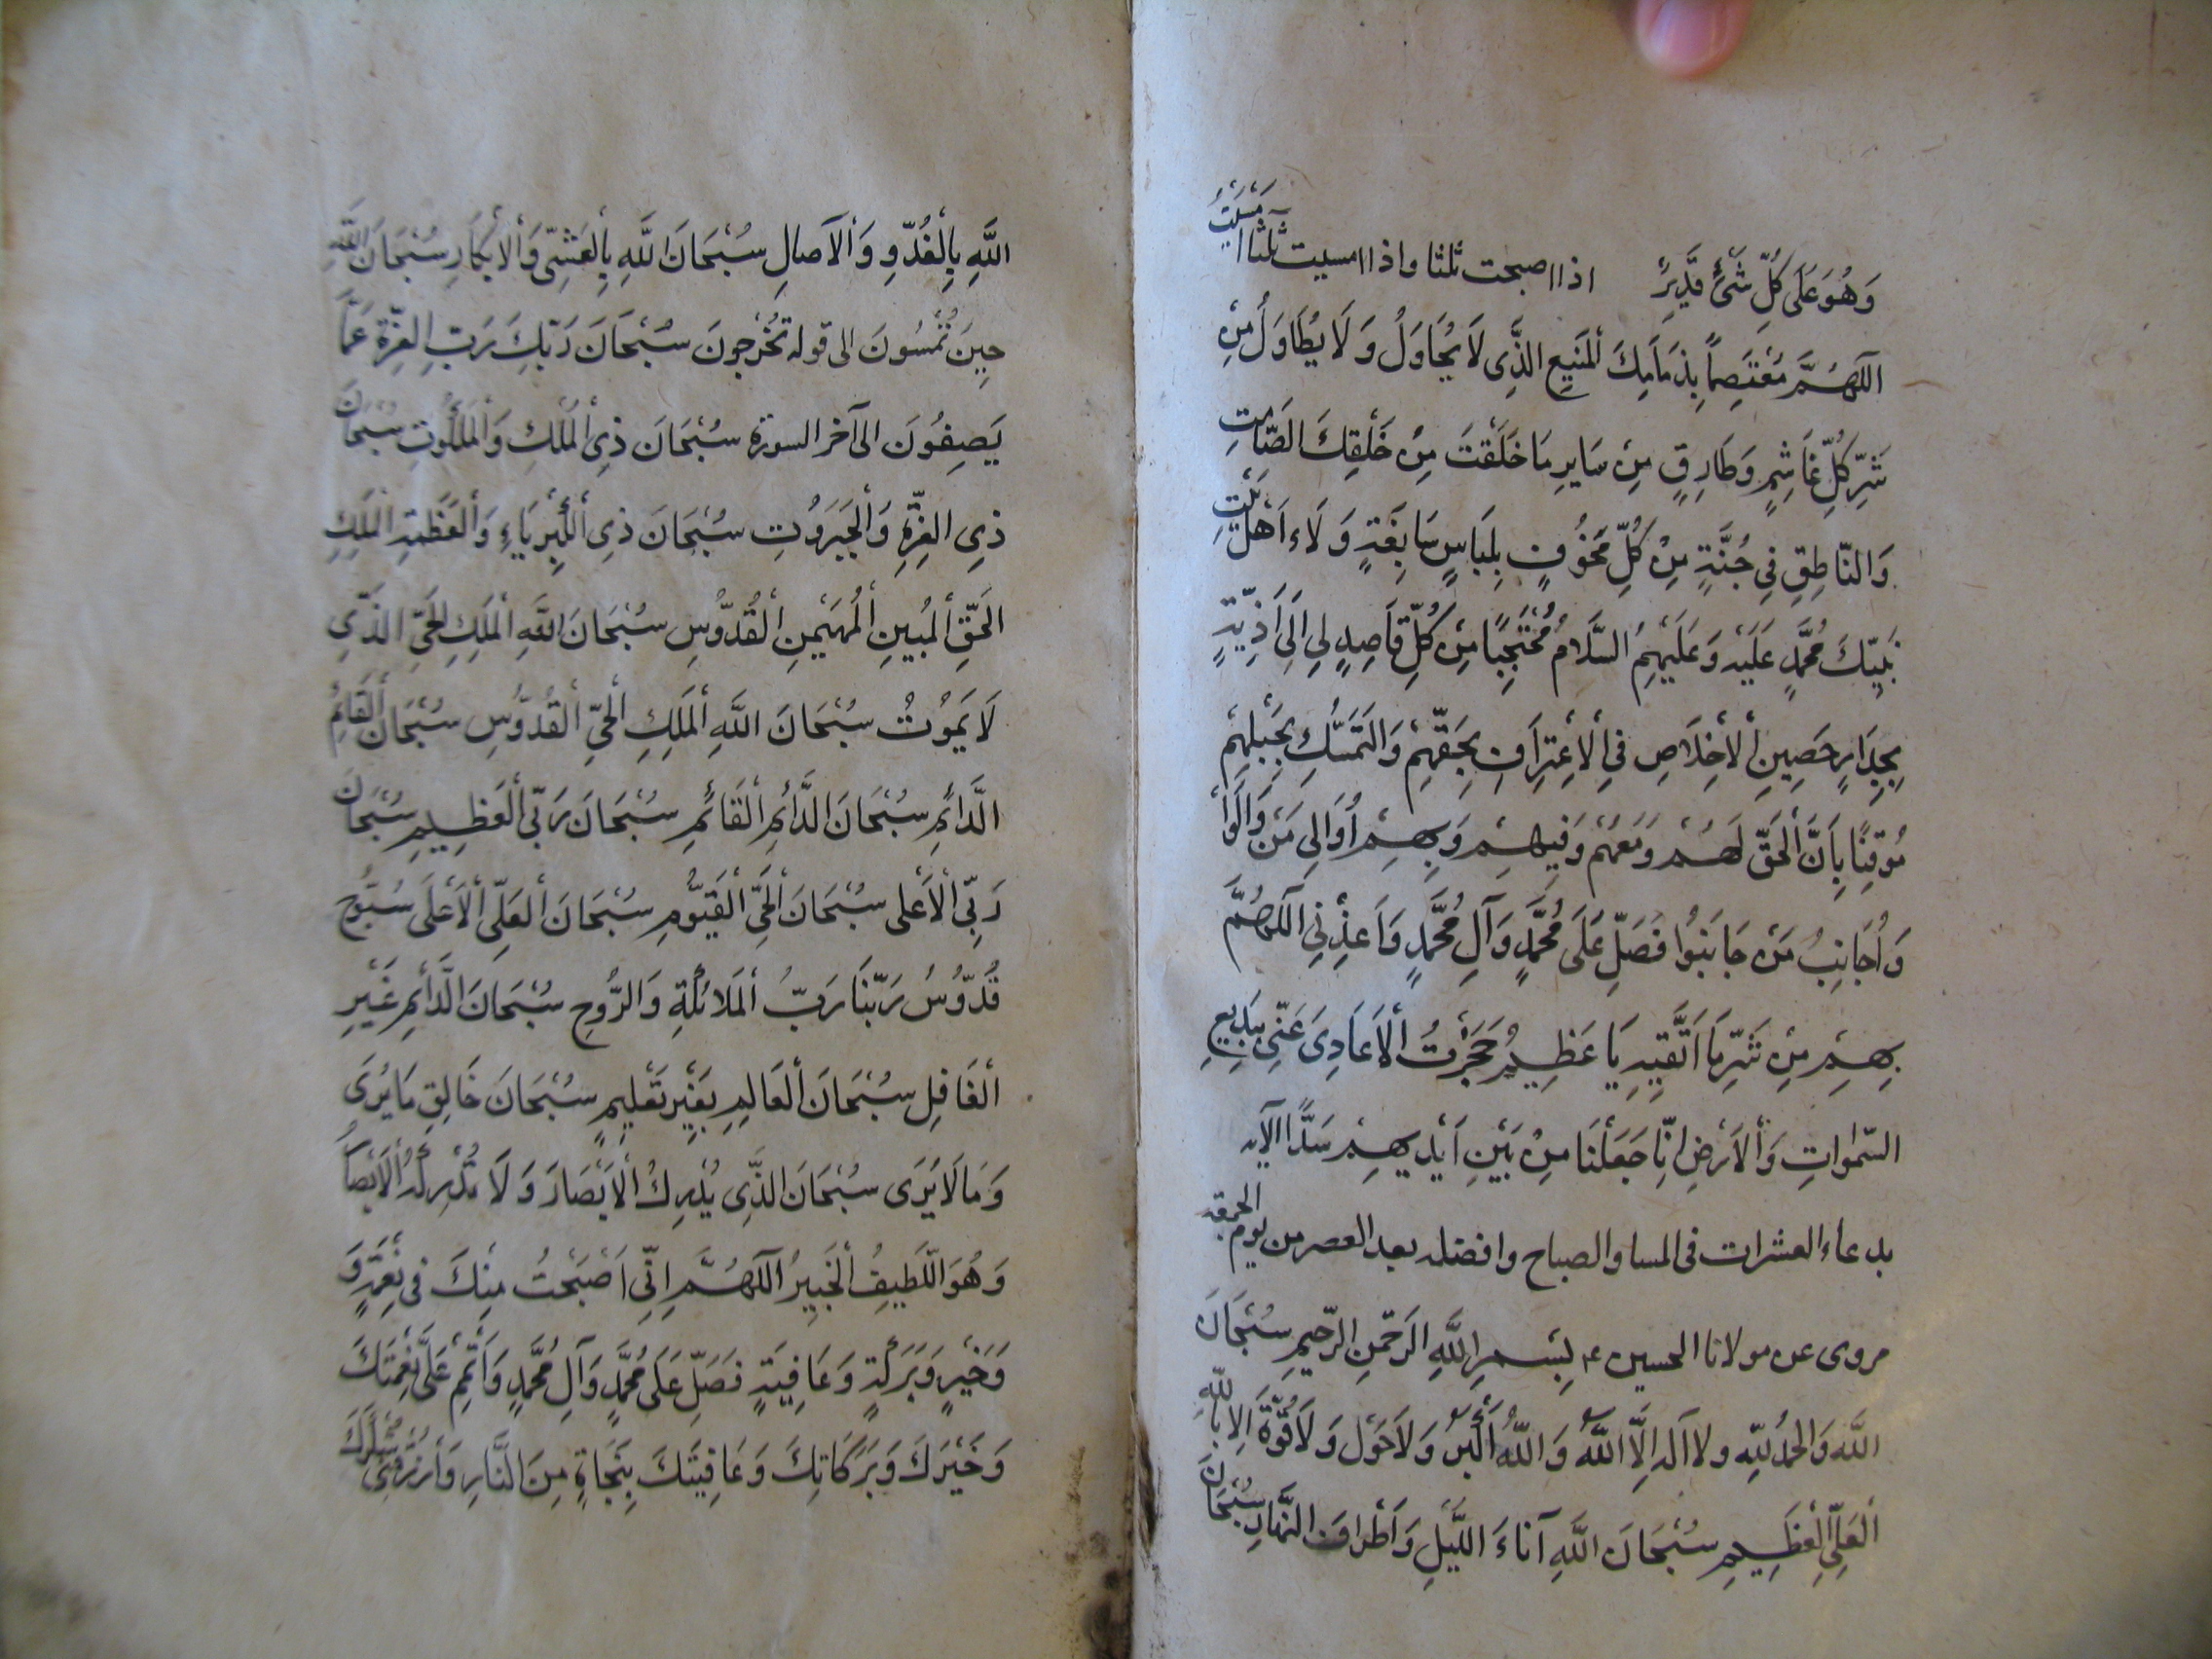 وَهُوَ عَلَى كُلِّ شَيْءٍ قَدِيرٌ اذا اصبحت ثلثا واذا امسيت ثلثا اَمْسَيْتُ
اَللّهُمَّ مُعْتَصِماً بِذِمَامِكَ اَلْمَنِيعِ الَّذِى لَا يُحَاوَلُ وَلَا يُطَاوَلُ مِنْ
شَرِّ كُلِّ غَاشِمٍ وَطَارِقٍ مِنْ سَايِرِ مَا خَلَقْتَ مِنْ خَلْقِكَ الصَّامِتِ
وَالنَّاطِقِ فِي جُنَّةٍ مِنْ كُلِّ مَخُوفٍ بِلِبَاسٍ سَابِغَةٍ وَلَاءِ اَهْلِ بَيْتِ
نَبِيِّكَ مُحَمَّدٍ عَلَيْهِ وَعَلَيْهِمُ السَّلَامُ مُحْتَجِبًا مِنْ كُلِّ قَاصِدٍ لِي اِلَى اَذِيَّةٍ
بِجِدَارٍ حَصِينِ اَلْاِخْلَاصِ فِي اَلْاِعْتِرَافِ بِحَقِّهِمْ وَالتَمَسُّكِ بِحَبْلِهِمْ
مُوقِنًا بِاَنَّ اَلْحَقَّ لَهُمْ وَمَعَهُمْ وَفِيهِمْ وَبِهِمْ اُوَالِى مَنْ وَالَوْا
وَاُجَانِبُ مَنْ جَانَبُوا فَصَلِّ عَلَى مُحَمَّدٍ وَآلِ مُحَمَّدٍ وَاَعِذْنِي اَللّهُمَّ
بِهِمْ مِنْ شَرِّ مَا اَتَّقِيهِ يَا عَظِيمُ حَجَزْتُ اَلْاَعَادِىَ عَنِّى بِبَدِيعِ
السَّمٰوَاتِ وَاَلْاَرْضِ اِنَّا جَعَلْنَا مِنْ بَيْنِ اَيْدِيهِمْ سَدًّا الآيه
بدعاء العشرات فى المسا والصباح وافضله بعد العصر من يوم الجمعة
مروى عن مولانا الحسين ع بِسْمِ اللَّهِ الرَّحْمنِ الرَّحِيمِ سُبْحَانَ
اللَّهِ وَالحَمْدُ لِلّهِ وَلا اله اِلَّا اللَّهُ وَاللَّهُ أَكْبَرُ وَلَا حَوْلَ وَلَا قُوَّةَ اِلا بِاللهِ
اَلْعَلِيِّ اَلْعَظِيمِ سُبْحَانَ اللَّهِ آنَاءَ اللَّيْلِ وَاَطْرَافَ النَّهَارِ سُبْحَانَ
اللَّهِ بِالْغُدُوِّ وَاَلْآصالِ سُبْحَانَ اللَّهِ بِالْعَشِيِّ وَاَلْاِبْكَارِ سُبْحَانَ اللَّهِ
حِينَ تُمْسُونَ الى قوله تُخْرَجُونَ سُبْحَانَ رَبِّكَ رَبِّ العِزَّةِ عَمَّا
يَصِفُونَ الى آخر السورة سُبْحَانَ ذِي اَلْمُلْكِ وَاَلْمَلَكُوتِ سُبْحَانَ
ذِي العِزَّةِ وَاَلْجَبَرُوتِ سُبْحَانَ ذِى اَلْكِبْرِيَاءِ وَاَلْعَظَمَةِ اَلْمَلِكِ
الْحَقِّ اَلْمُبِينِ اَلْمُهَيْمِنِ اَلْقُدُّوسِ سُبْحَانَ اللَّهِ اَلْمَلِكِ الْحَيِّ الَّذِى
لَا يَمُوتُ سُبْحَانَ اللَّهِ اَلْمَلِكِ اَلْحَيِّ اَلْقُدُّوسِ سُبْحَانَ اَلْقَائِمِ
الدَّائِمِ سُبْحَانَ الدَّائِمِ اَلْقَائِمِ سُبْحَانَ رَبِّيَ اَلْعَظِيمِ سُبْحَانَ
رَبِّيَ اَلْاَعْلى سُبْحَانَ اَلْحَيِّ اَلْقَيُّومِ سُبْحَانَ اَلْعَلِيِّ اَلْاَعْلَى سُبُّوحٌ
قُدُّوسٌ رَبُّنَا رَبُّ اَلْمَلَائِكَةِ وَالرُّوحِ سُبْحَانَ الدَّائِمِ غَيْرِ
اَلْغَافِلِ سُبْحَانَ اَلْعَالِمِ بِغَيْرِ تَعْلِيمٍ سُبْحَانَ خَالِقِ مَا يُرَى
وَمَا لَا يُرَى سُبْحَانَ الَّذِى يُدْرِكُ اَلْاَبْصَارَ وَلَا تُدْرِكُهُ اَلْاَبْصَارُ
وَهُوَ اللَّطِيفُ اَلْخَبِيرُ اَللّهُمَّ اِنِّى اَصْبَحْتُ مِنْكَ فى نِعْمَةٍ وَ
وَخَيْرٍ وَبَرَكَةٍ وَعَافِيَةٍ فَصَلِّ عَلَى مُحَمَّدٍ وَآلِ مُحَمَّدٍ وَاَتْمِمْ عَلَيَّ نِعْمَتَكَ
وَخَيْرَكَ وَبَرَكَاتِكَ وَعَافِيَتَكَ بِنَجَاةٍ مِنَ النَّارِ وَارْزُقْنِى شُكْرَكَ